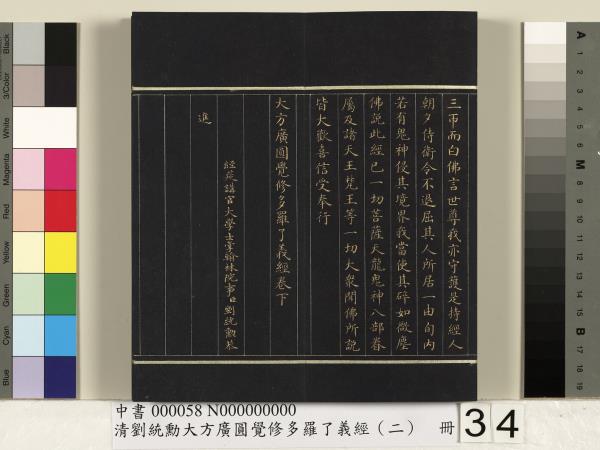 三帀而白佛言世尊我亦守護是持經人
朝夕侍衛令不退屈其人所居一由旬內
若有鬼神侵其境界我當使其碎如微塵
佛說此經已一切菩薩天龍鬼神八部眷
屬及諸天王梵王等一切大衆聞佛所說
皆大歡喜信受奉行
大方廣圓覺修多羅了義經卷下
經筵講官大學士掌翰林院事臣劉統勲恭
進
Black
3/Color
White
Magenta
Red
Yellow
Green
Cyan
Blue
A
1
2
3
4
5
6
M
8
9
10
11
12
13
14
15
B
17
18
19
中書 000058 N000000000
清劉統勳大方廣圓覺修多羅了義經（二） 冊 34